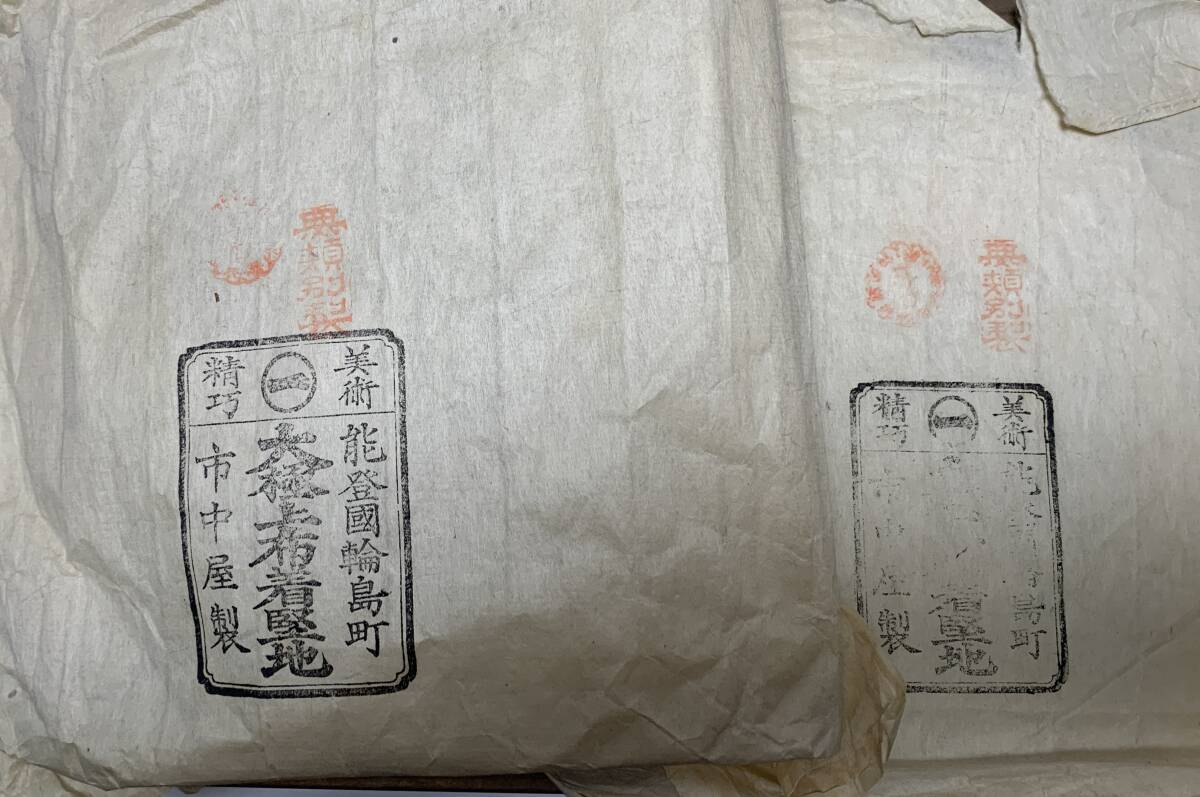 無類別製
美術
㊀
精巧
能登國輪島町
大極上布着堅地
市中屋製
無類別製
美術
㊀
精巧
島町
着堅地
屋製